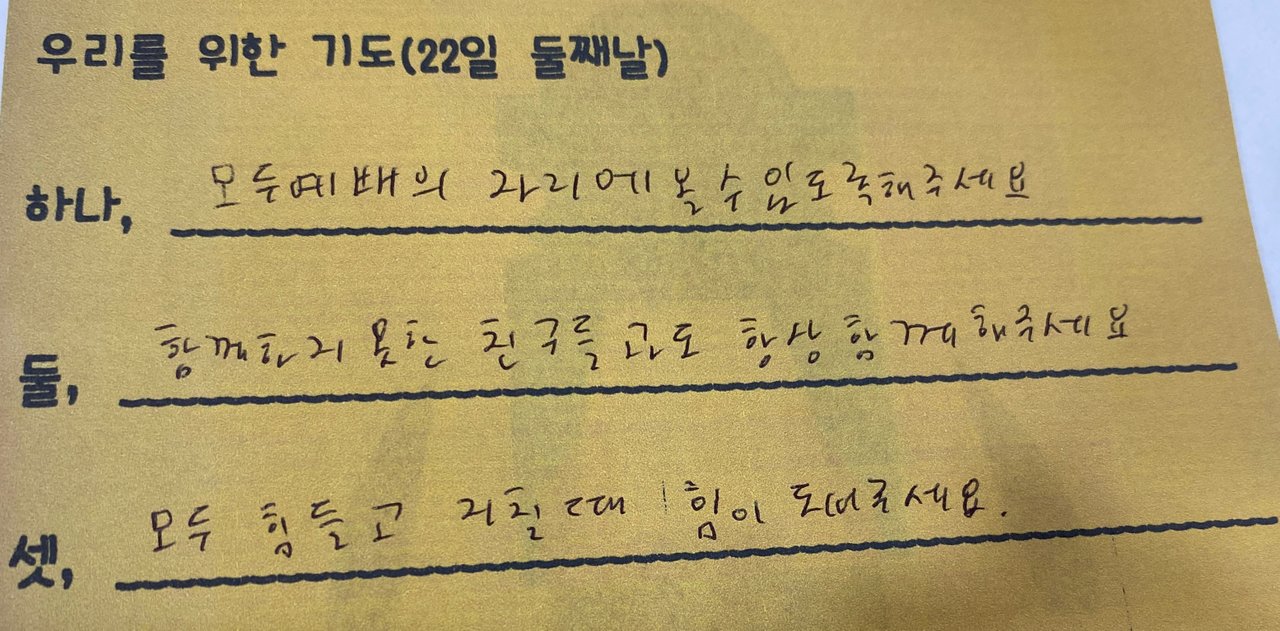 우리를 위한 기도(22일 둘째날)
하나, 모두예배의 자리에 올 수 있도록해주세요
둘, 함께하지 못한 친구들과도 항상 함께해주세요
셋, 모두 힘들고 지칠때 힘이 되어주세요.